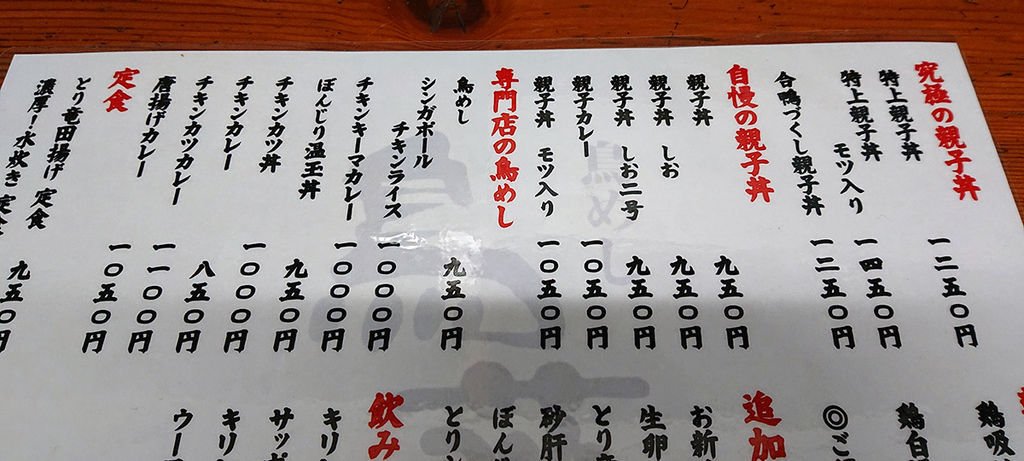 究極の親子丼
特上親子丼 一二五〇円
特上親子丼 モツ入り 一四五〇円
合鴨づくし親子丼 一二五〇円
自慢の親子丼
親子丼 九五〇円
親子丼 しお 九五〇円
親子丼 しお二号 九五〇円
親子カレー 一〇五〇円
親子丼 モツ入り 一〇五〇円
専門店の鳥めし
鳥めし 九五〇円
シンガポール
チキンライス 一〇〇〇円
チキンキーマカレー 一〇〇〇円
ぼんじり温玉丼 九五〇円
チキンカツ丼 一〇〇〇円
チキンカレー 八五〇円
チキンカツカレー 一一〇〇円
唐揚げカレー 一〇五〇円
定食
とり竜田揚げ 定食 九五〇円
濃厚!水炊き 定食
鶏吸
鶏白
◎ご
追加
お新
生卵
とり
砂肝
ぼん
とり
飲み
キリ
サッ
キリ
ウー
鳥めし